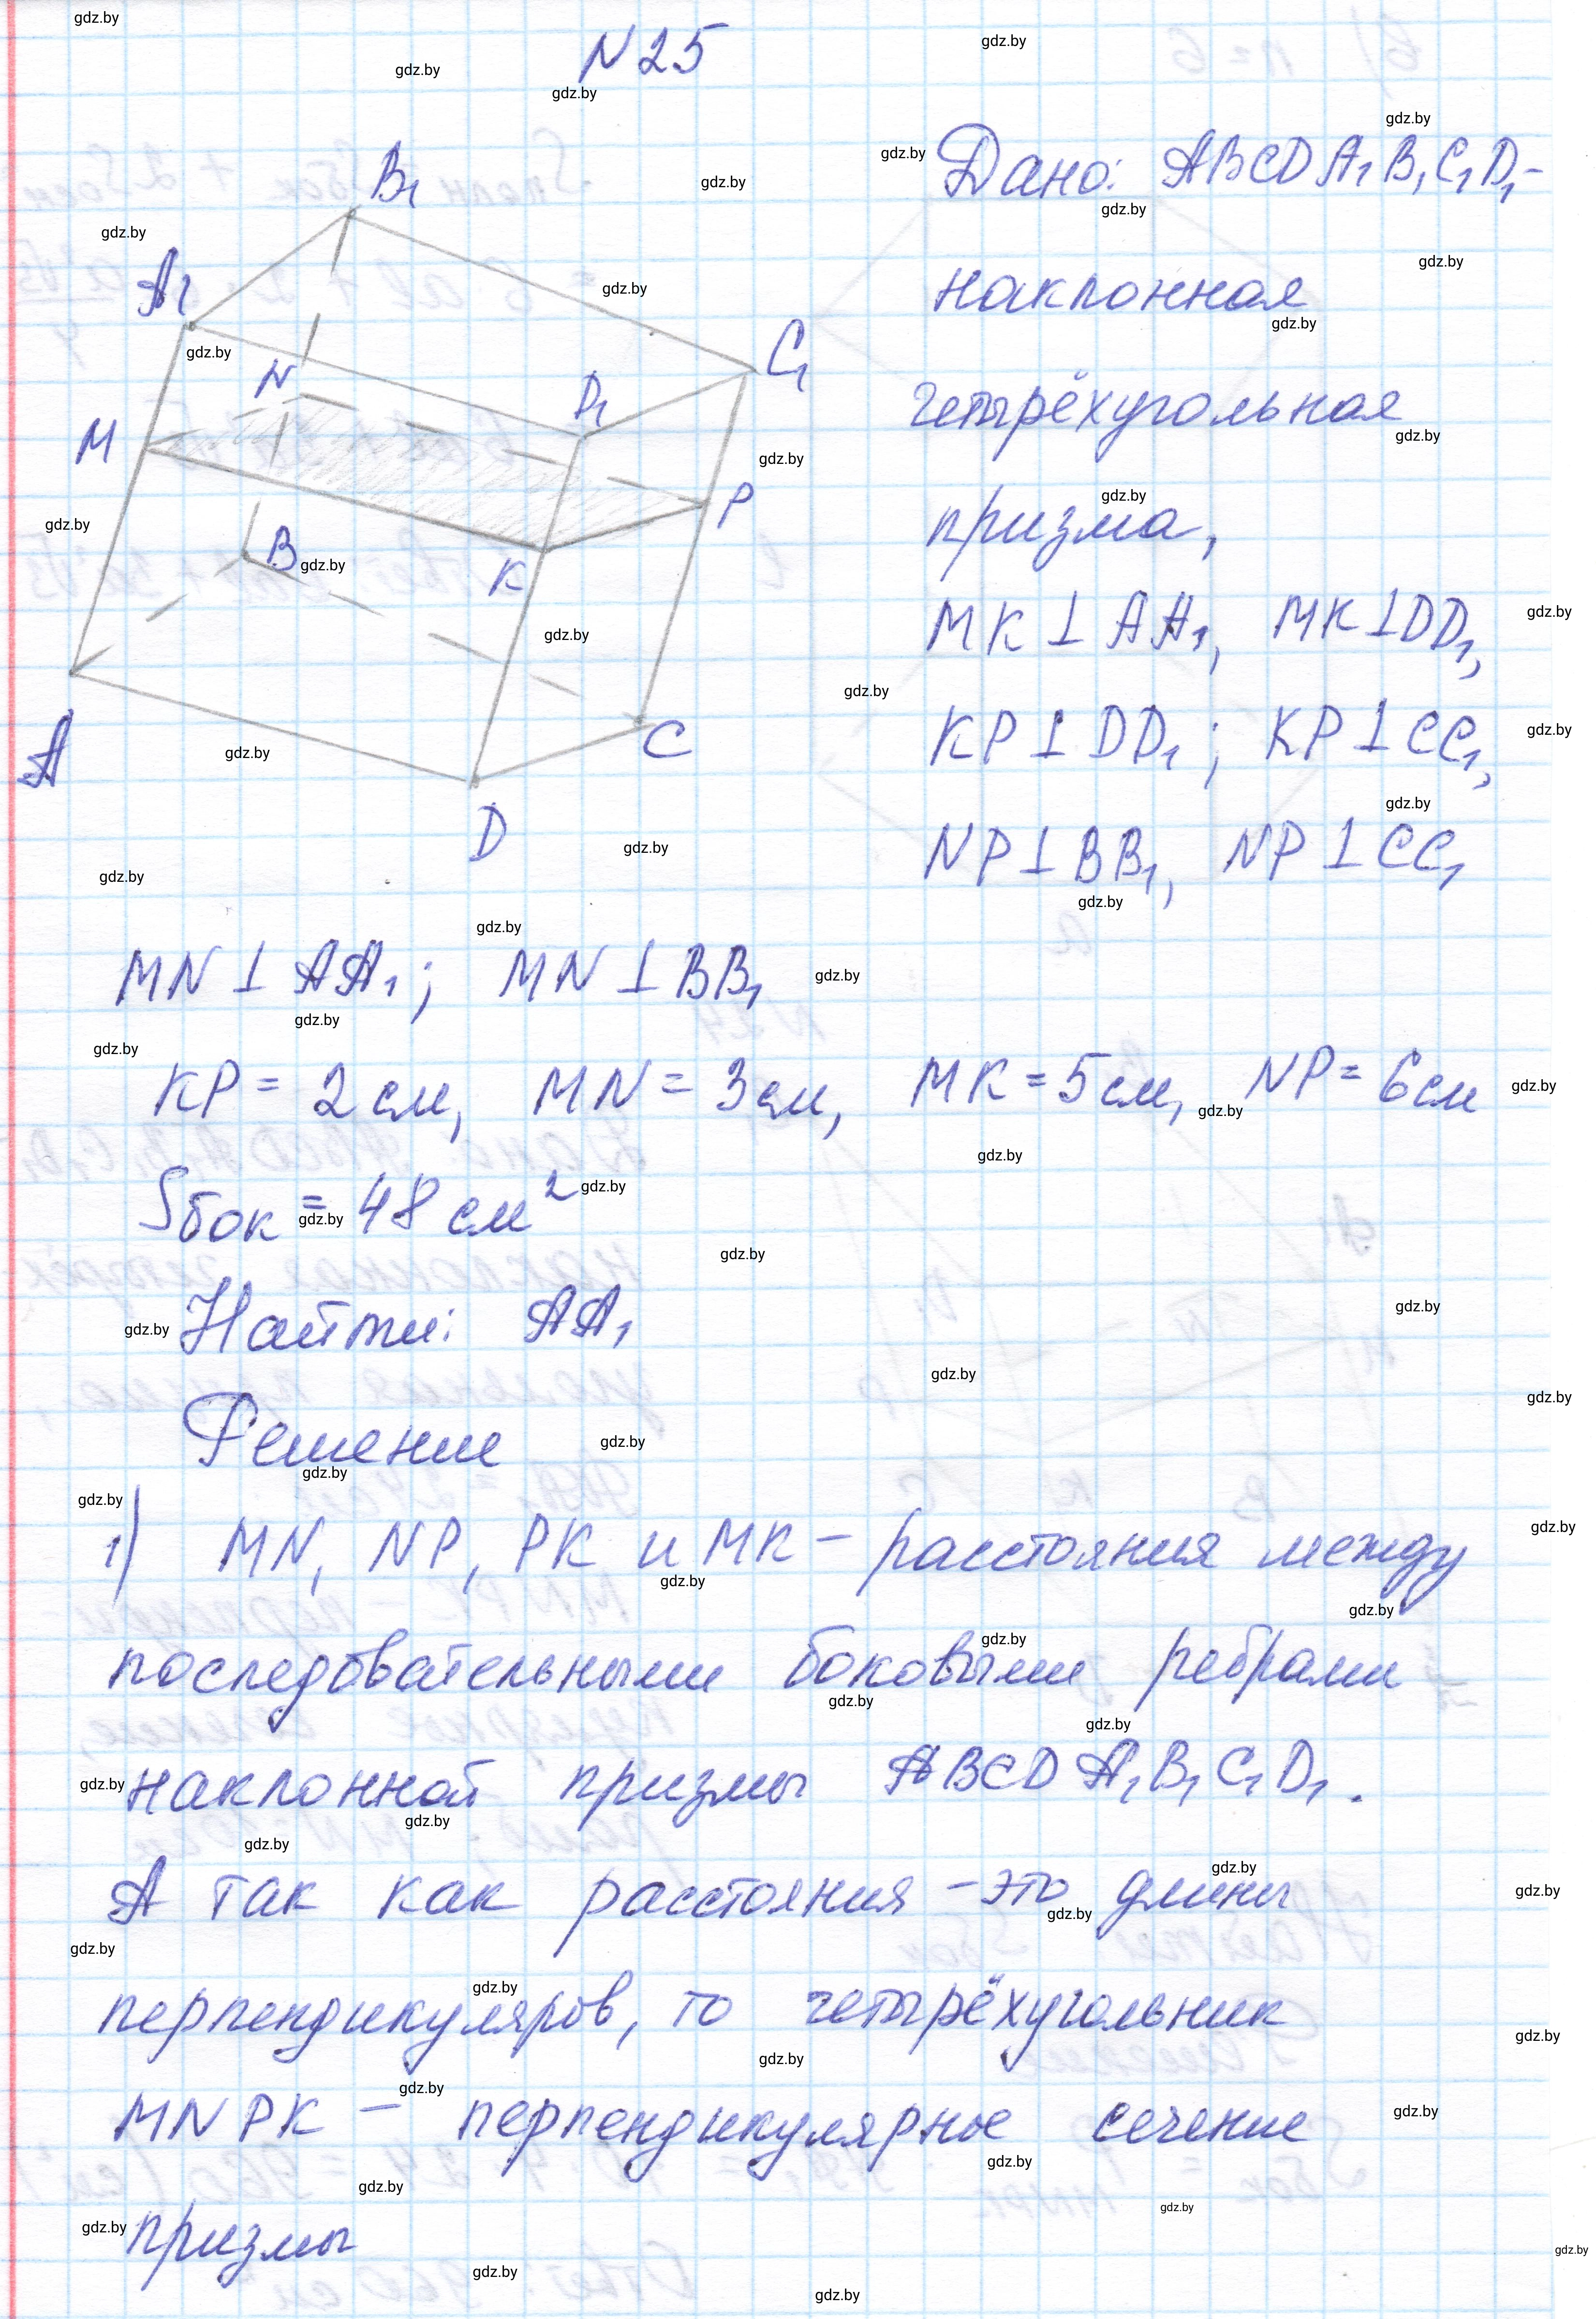 N 25
B₁
A₁
C₁
N
D₁
M
P
B
K
C
A
D
Дано: ABCDA₁B₁C₁D₁-
наклонная
четырёхугольная
призма,
MK⊥AA₁, MK⊥DD₁,
KP⊥DD₁; KP⊥CC₁,
NP⊥BB₁, NP⊥CC₁
MN⊥AA₁; MN⊥BB₁
KP = 2 см, MN = 3 см, MK = 5 см, NP = 6 см
Sбок = 48 см²
Найти: AA₁
Решение
1) MN, NP, PK и MK – расстояния между
последовательными боковыми ребрами
наклонной призмы ABCDA₁B₁C₁D₁.
А так как расстояния – это длины
перпендикуляров, то четырёхугольник
MNPK – перпендикулярное сечение
призмы
gdz.by